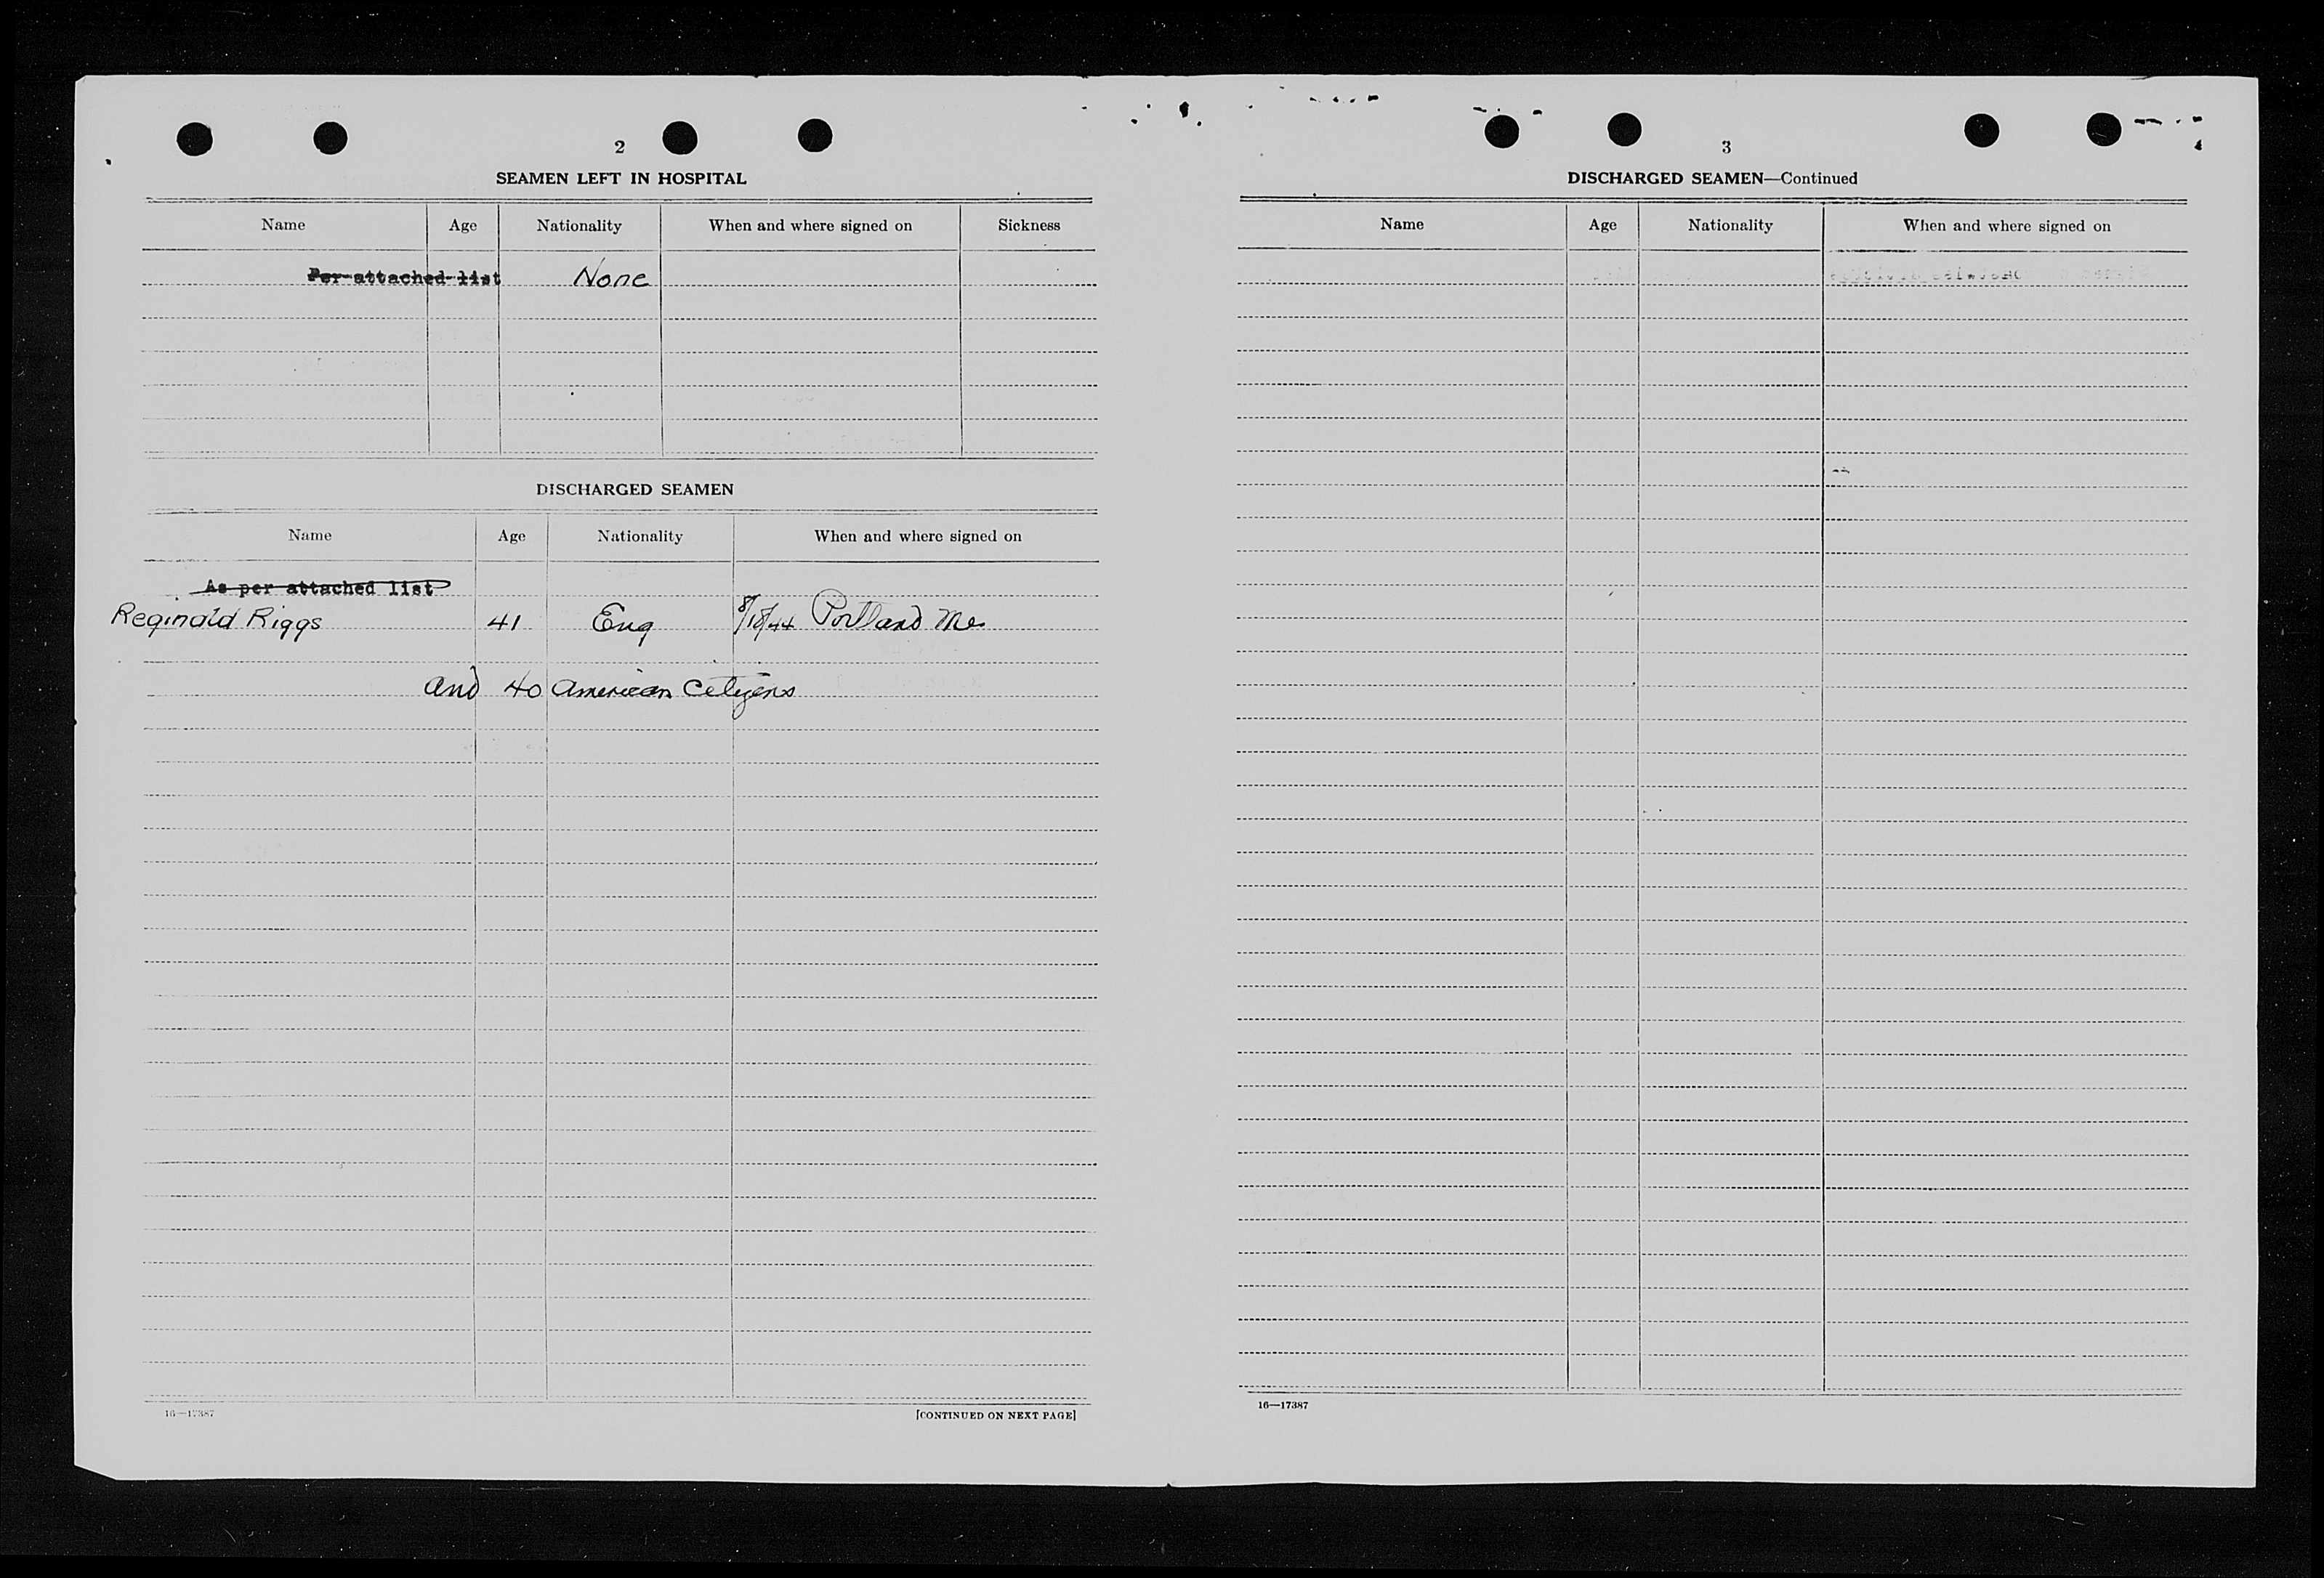 2
SEAMEN LEFT IN HOSPITAL
Name Age Nationality When and where signed on Sickness
Per attached list None
DISCHARGED SEAMEN
Name Age Nationality When and where signed on
As per attached list
Reginald Riggs 41 Eng 8/18/44 Portland Me
and 40 American Citizens
16—17387 [CONTINUED ON NEXT PAGE]
3
DISCHARGED SEAMEN—Continued
Name Age Nationality When and where signed on
16—17387